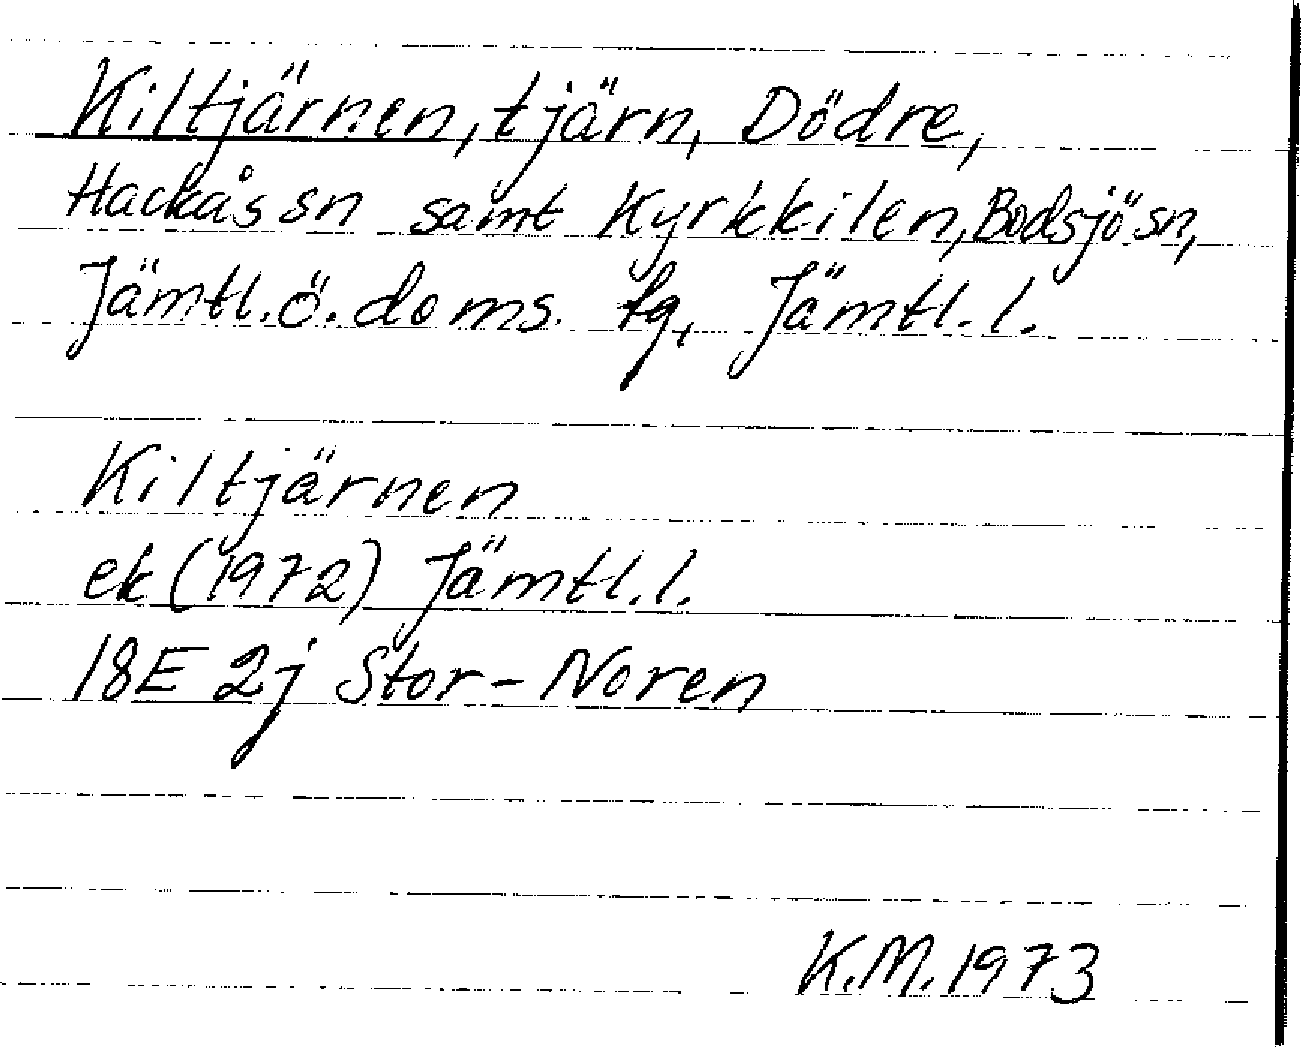 Kiltjärnen, tjärn, Dödre,
Hackås sn samt Kyrkkilen, Bodsjö sn,
Jämtl. ö. doms. tg, Jämtl. l.
Kiltjärnen
ek (1972) Jämtl. l.
18E 2j Stor-Noren
K.M. 1973